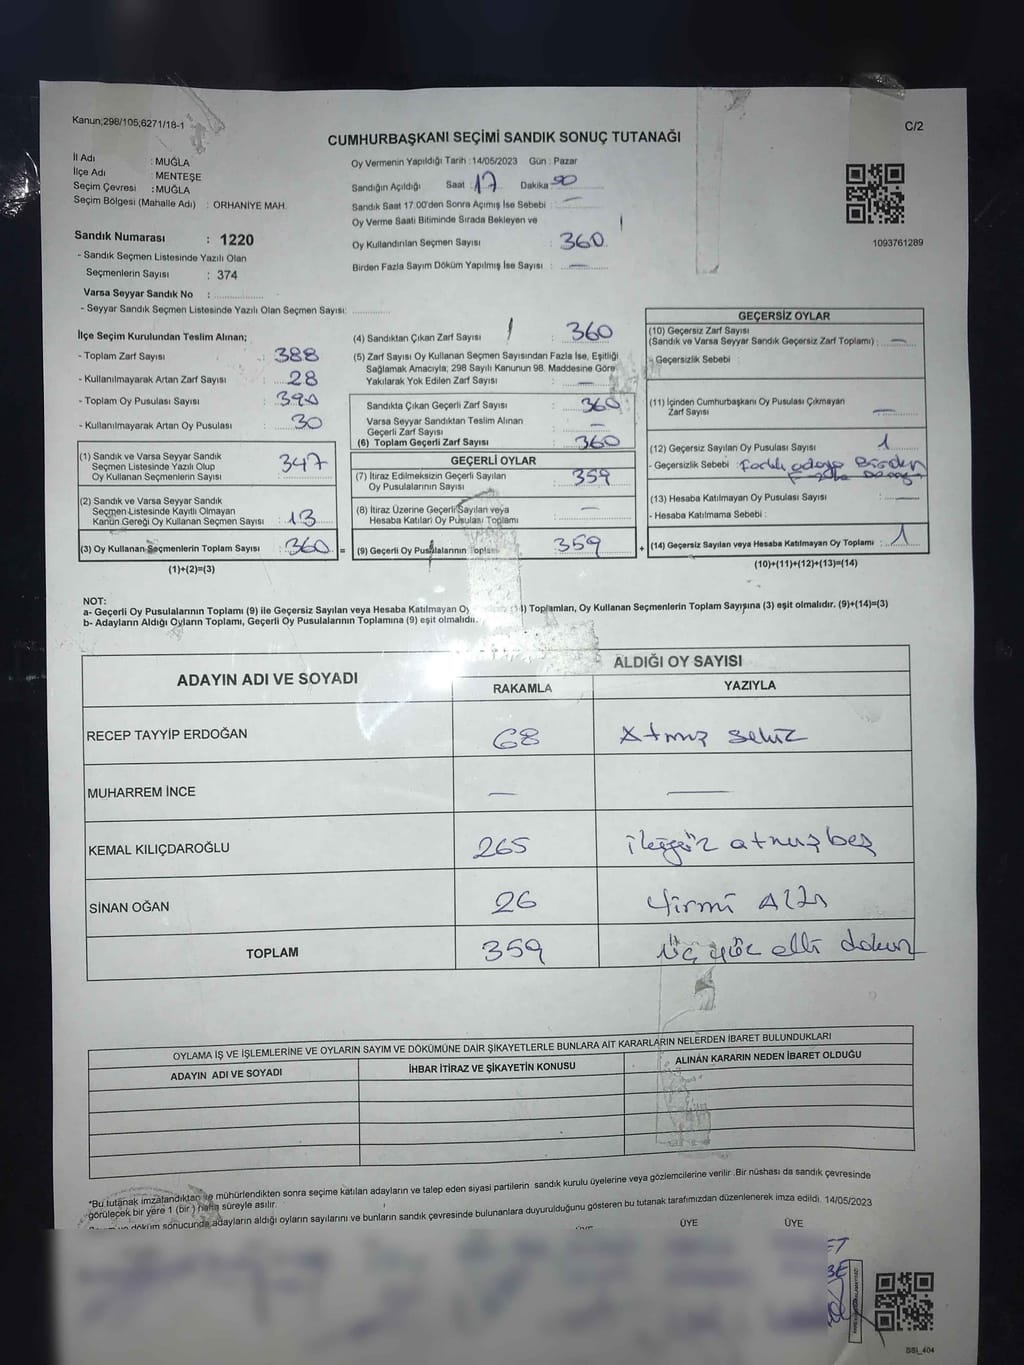 Kanun;298/105;6271/18-1
C/2
CUMHURBAŞKANI SEÇİMİ SANDIK SONUÇ TUTANAĞI
İl Adı : MUĞLA
İlçe Adı : MENTEŞE
Seçim Çevresi : MUĞLA
Seçim Bölgesi (Mahalle Adı) : ORHANİYE MAH.
Sandık Numarası : 1220
- Sandık Seçmen Listesinde Yazılı Olan
Seçmenlerin Sayısı : 374
Varsa Seyyar Sandık No :
- Seyyar Sandık Seçmen Listesinde Yazılı Olan Seçmen Sayısı:
Oy Vermenin Yapıldığı Tarih :14/05/2023 Gün : Pazar
Sandığın Açıldığı Saat : 17 Dakika
Sandık Saat 17.00'den Sonra Açımış İse Sebebi : —
Oy Verme Saati Bitiminde Sırada Bekleyen ve
Oy Kullandırılan Seçmen Sayısı : 360
Birden Fazla Sayım Döküm Yapılmış İse Sayısı : —
1093761289
İlçe Seçim Kurulundan Teslim Alınan;
- Toplam Zarf Sayısı : 388
- Kullanılmayarak Artan Zarf Sayısı : 28
- Toplam Oy Pusulası Sayısı : 390
- Kullanılmayarak Artan Oy Pusulası : 30
(1) Sandık ve Varsa Seyyar Sandık
Seçmen Listesinde Yazılı Olup
Oy Kullanan Seçmenlerin Sayısı : 347
(2) Sandık ve Varsa Seyyar Sandık
Seçmen Listesinde Kayıtlı Olmayan
Kanun Gereği Oy Kullanan Seçmen Sayısı : 13
(3) Oy Kullanan Seçmenlerin Toplam Sayısı : 360 =
(1)+(2)=(3)
(4) Sandıktan Çıkan Zarf Sayısı : 360
(5) Zarf Sayısı Oy Kullanan Seçmen Sayısından Fazla İse, Eşitliği
Sağlamak Amacıyla; 298 Sayılı Kanunun 98. Maddesine Göre
Yakılarak Yok Edilen Zarf Sayısı : —
Sandıkta Çıkan Geçerli Zarf Sayısı : 360
Varsa Seyyar Sandıktan Teslim Alınan
Geçerli Zarf Sayısı : —
(6) Toplam Geçerli Zarf Sayısı : 360
GEÇERLİ OYLAR
(7) İtiraz Edilmeksizin Geçerli Sayılan
Oy Pusulalarının Sayısı : 359
(8) İtiraz Üzerine Geçerli Sayılan veya
Hesaba Katılan Oy Pusulası Toplamı : —
(9) Geçerli Oy Pusulalarının Toplamı : 359 +
GEÇERSİZ OYLAR
(10) Geçersiz Zarf Sayısı
(Sandık ve Varsa Seyyar Sandık Geçersiz Zarf Toplamı) : —
- Geçersizlik Sebebi :
(11) İçinden Cumhurbaşkanı Oy Pusulası Çıkmayan
Zarf Sayısı : —
(12) Geçersiz Sayılan Oy Pusulası Sayısı : 1
- Geçersizlik Sebebi : farklı adaya Birden
fazla
(13) Hesaba Katılmayan Oy Pusulası Sayısı : —
- Hesaba Katılmama Sebebi :
(14) Geçersiz Sayılan veya Hesaba Katılmayan Oy Toplamı : 1
(10)+(11)+(12)+(13)=(14)
NOT:
a- Geçerli Oy Pusulalarının Toplamı (9) ile Geçersiz Sayılan veya Hesaba Katılmayan Oy (14) Toplamları, Oy Kullanan Seçmenlerin Toplam Sayısına (3) eşit olmalıdır. (9)+(14)=(3)
b- Adayların Aldığı Oyların Toplamı, Geçerli Oy Pusulalarının Toplamına (9) eşit olmalıdır.
ADAYIN ADI VE SOYADI
ALDIĞI OY SAYISI
RAKAMLA YAZIYLA
RECEP TAYYİP ERDOĞAN 68 Atmış sekiz
MUHARREM İNCE — —
KEMAL KILIÇDAROĞLU 265 ikiyüz atmış beş
SİNAN OĞAN 26 Yirmi Altı
TOPLAM 359 üç yüz elli dokuz
OYLAMA İŞ VE İŞLEMLERİNE VE OYLARIN SAYIM VE DÖKÜMÜNE DAİR ŞİKAYETLERLE BUNLARA AİT KARARLARIN NELERDEN İBARET BULUNDUKLARI
ADAYIN ADI VE SOYADI İHBAR İTİRAZ VE ŞİKAYETİN KONUSU ALINAN KARARIN NEDEN İBARET OLDUĞU
*Bu tutanak imzalandıktan ve mühürlendikten sonra seçime katılan adayların ve talep eden siyasi partilerin sandık kurulu üyelerine veya gözlemcilerine verilir .Bir nüshası da sandık çevresinde
görülecek bir yere 1 (bir ) hafta süreyle asılır.
döküm sonucunda adayların aldığı oyların sayılarını ve bunların sandık çevresinde bulunanlara duyurulduğunu gösteren bu tutanak tarafımızdan düzenlenerek imza edildi. 14/05/2023
ÜYE ÜYE